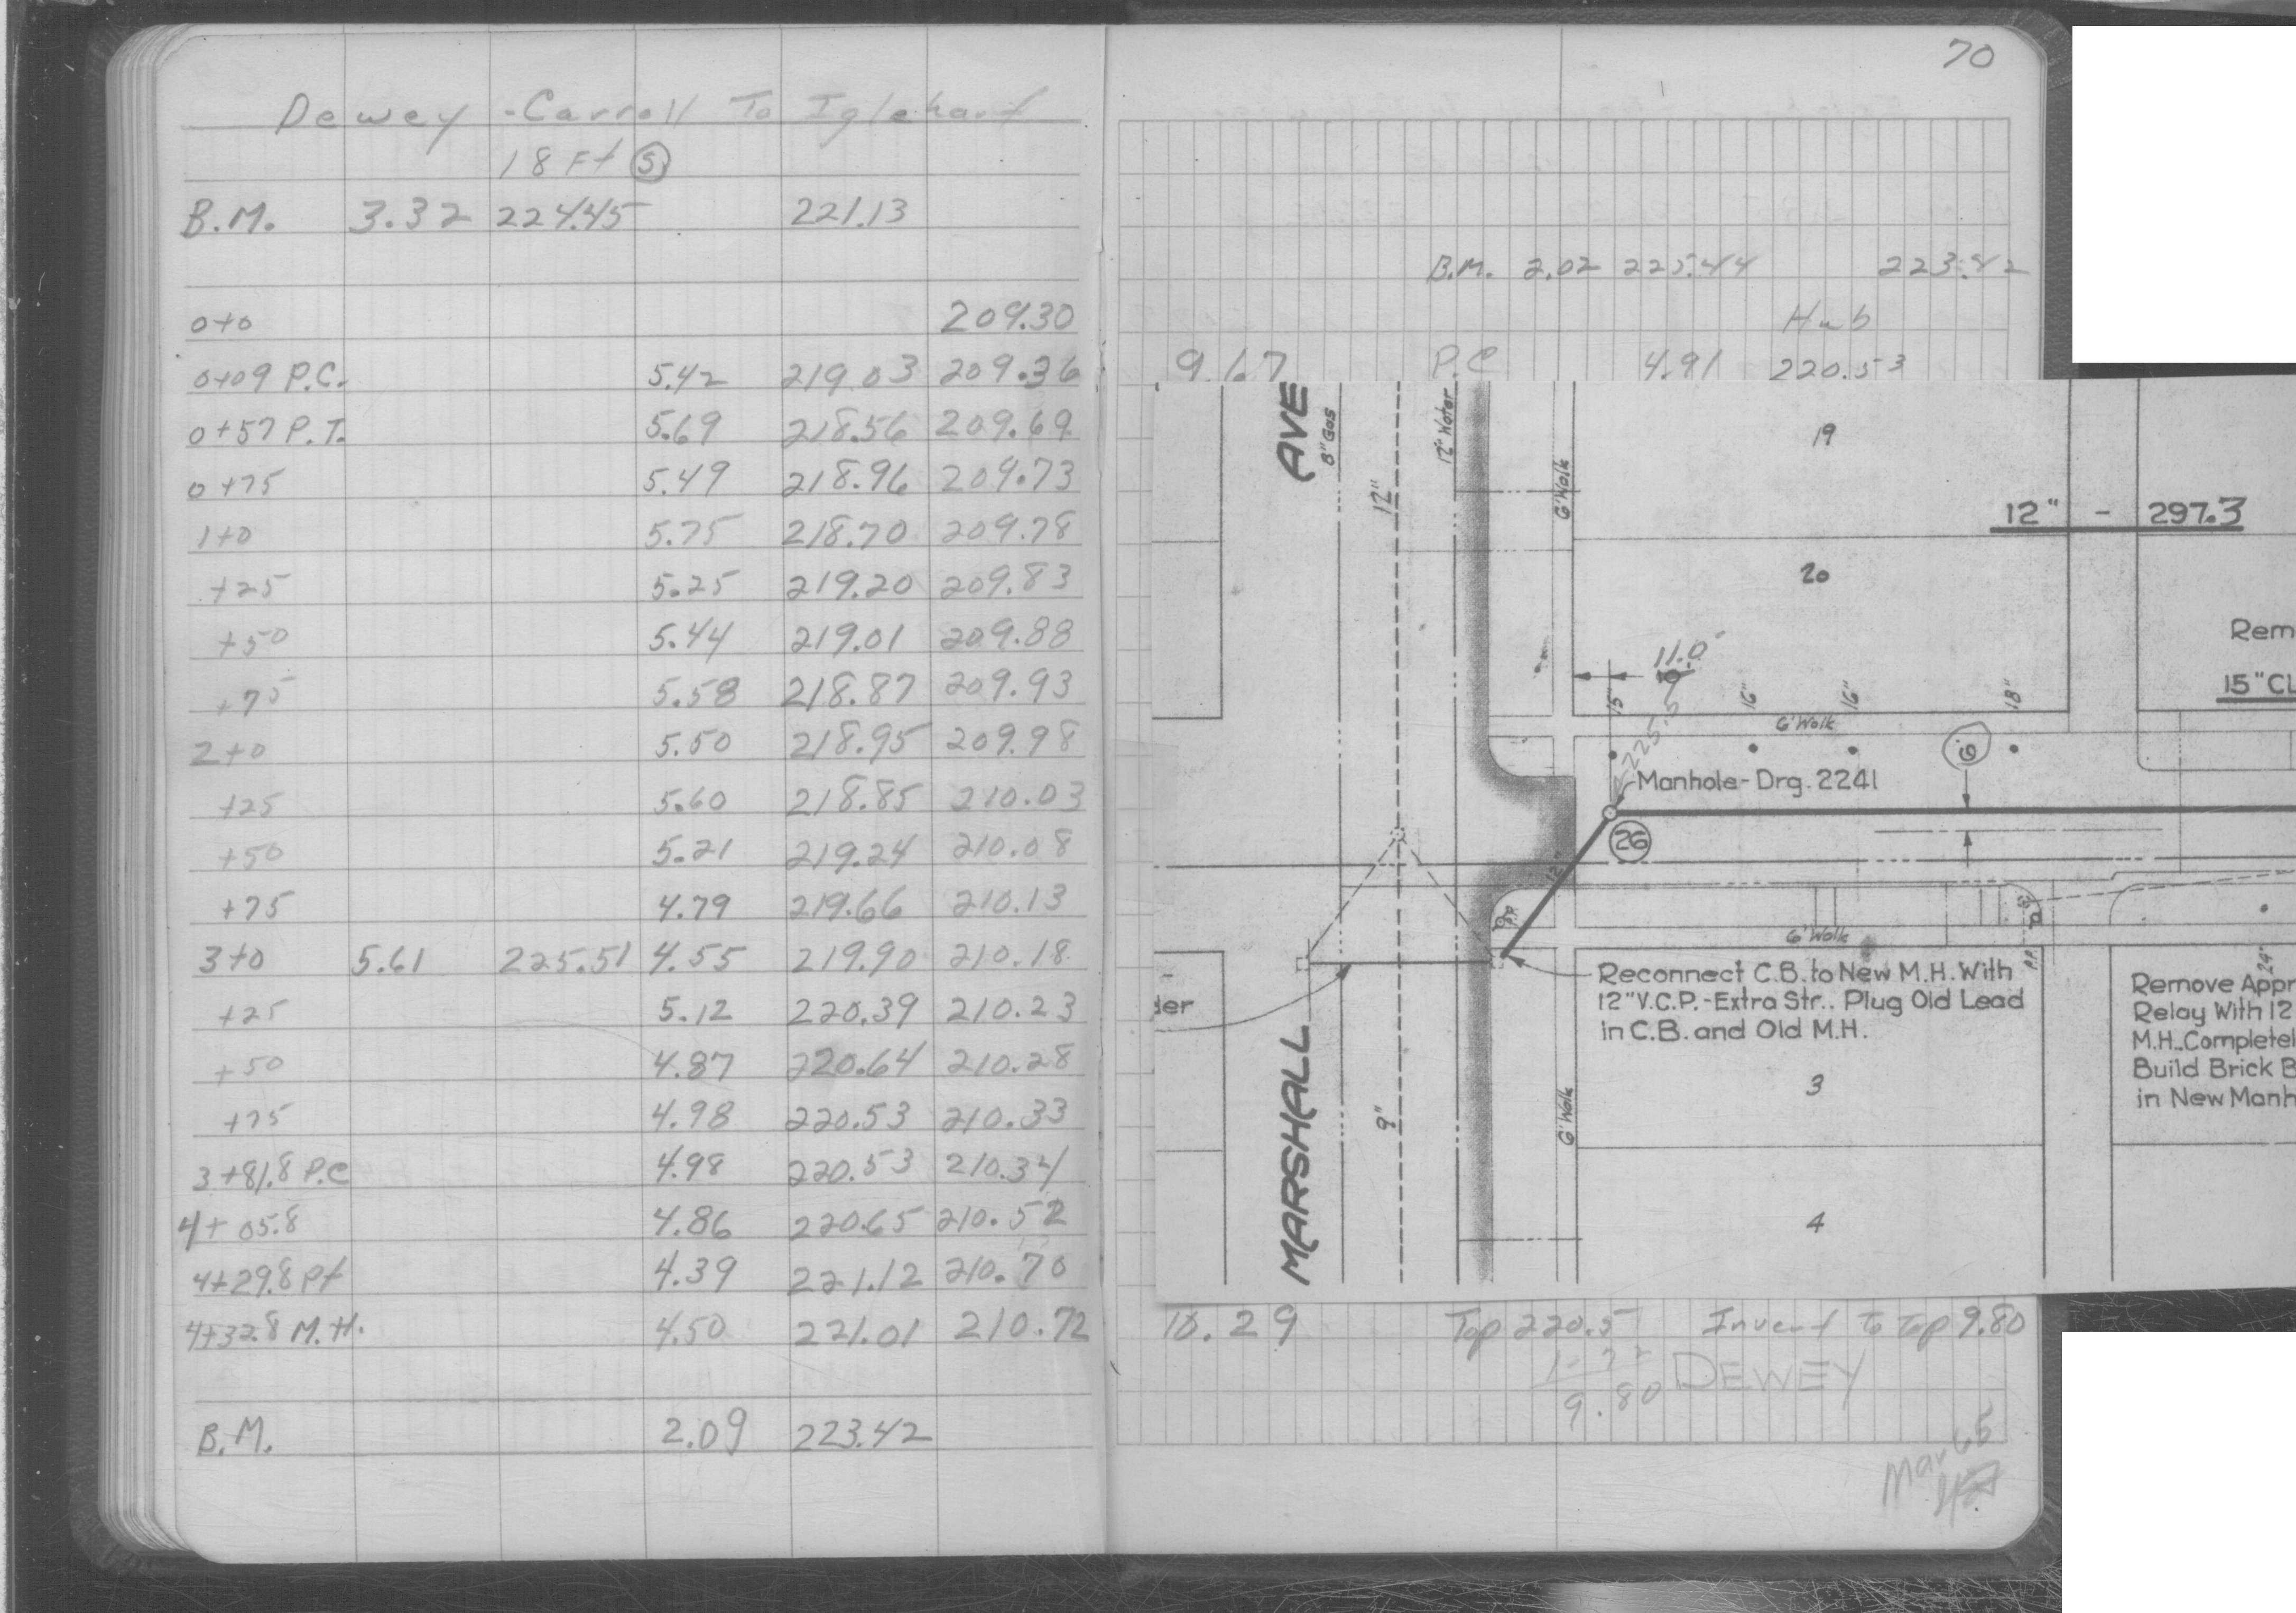 Dewey - Carroll To Iglehart
18 Ft (S)
B.M. 3.32 224.45 221.13
0+0 209.30
0+09 P.C. 5.42 219.03 209.36
0+57 P.T. 5.69 218.56 209.69
0+75 5.49 218.96 209.73
1+0 5.75 218.70 209.78
+25 5.25 219.20 209.83
+50 5.44 219.01 209.88
+75 5.58 218.87 209.93
2+0 5.50 218.95 209.98
+25 5.60 218.85 210.03
+50 5.21 219.24 210.08
+75 4.79 219.66 210.13
3+0 5.61 225.51 4.55 219.90 210.18
+25 5.12 220.39 210.23
+50 4.87 220.64 210.28
+75 4.98 220.53 210.33
3+81.8 P.C 4.98 220.53 210.34
4+05.8 4.86 220.65 210.52
4+29.8 Pt 4.39 221.12 210.70
4+32.8 M.H. 4.50 221.01 210.72
B.M. 2.09 223.42
70
B.M. 2.02 225.44 223.42
Hub
9.67 P.C 4.91 220.53
MARSHALL AVE
8" Gas
12"
12" Water
6' Walk
19
20
12" - 297.3
Rem
15" CL
11.0
15"
16"
16"
18"
6' Walk
225.5
6
Manhole - Drg. 2241
26
12"
P.P.
6' Walk
P.P.
24"
9"
6' Walk
der
Reconnect C.B. to New M.H. With
12" V.C.P. - Extra Str.. Plug Old Lead
in C.B. and Old M.H.
3
4
Remove Appr
Relay With 12
M.H. Completel
Build Brick B
in New Manh
10.29 Top 220.5 Invert To Top 9.80
9.80 DEWEY
Mar 65